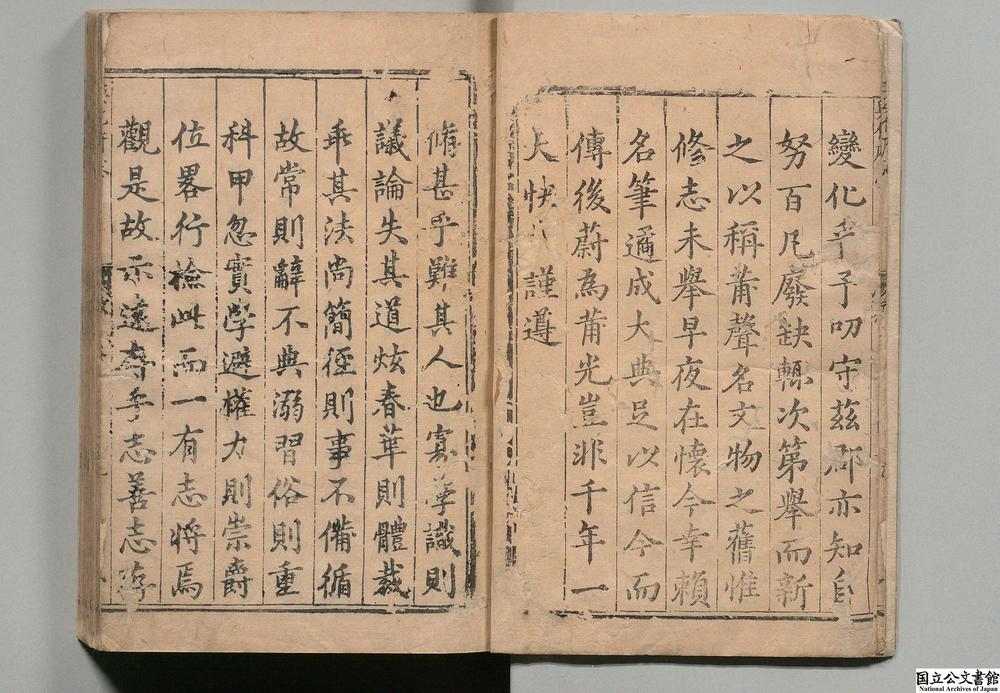 變化乎予叨守茲郡亦知自
努百凡廢缺輒次第舉而新
之以稱莆聲名文物之舊惟
修志未舉早夜在懷今幸賴
名筆適成大典足以信今而
傳後蔚為莆光豈非千年一
大快 謹遵
脩甚乎難其人也寡學識則
議論失其道炫春華則體裁
乖其法尚簡徑則事不備循
故常則辭不典溺習俗則重
科甲忽實學避權力則崇爵
位畧行檢此而一有志將焉
觀是故示遠存乎志善志存
国立公文書館
National Archives of Japan